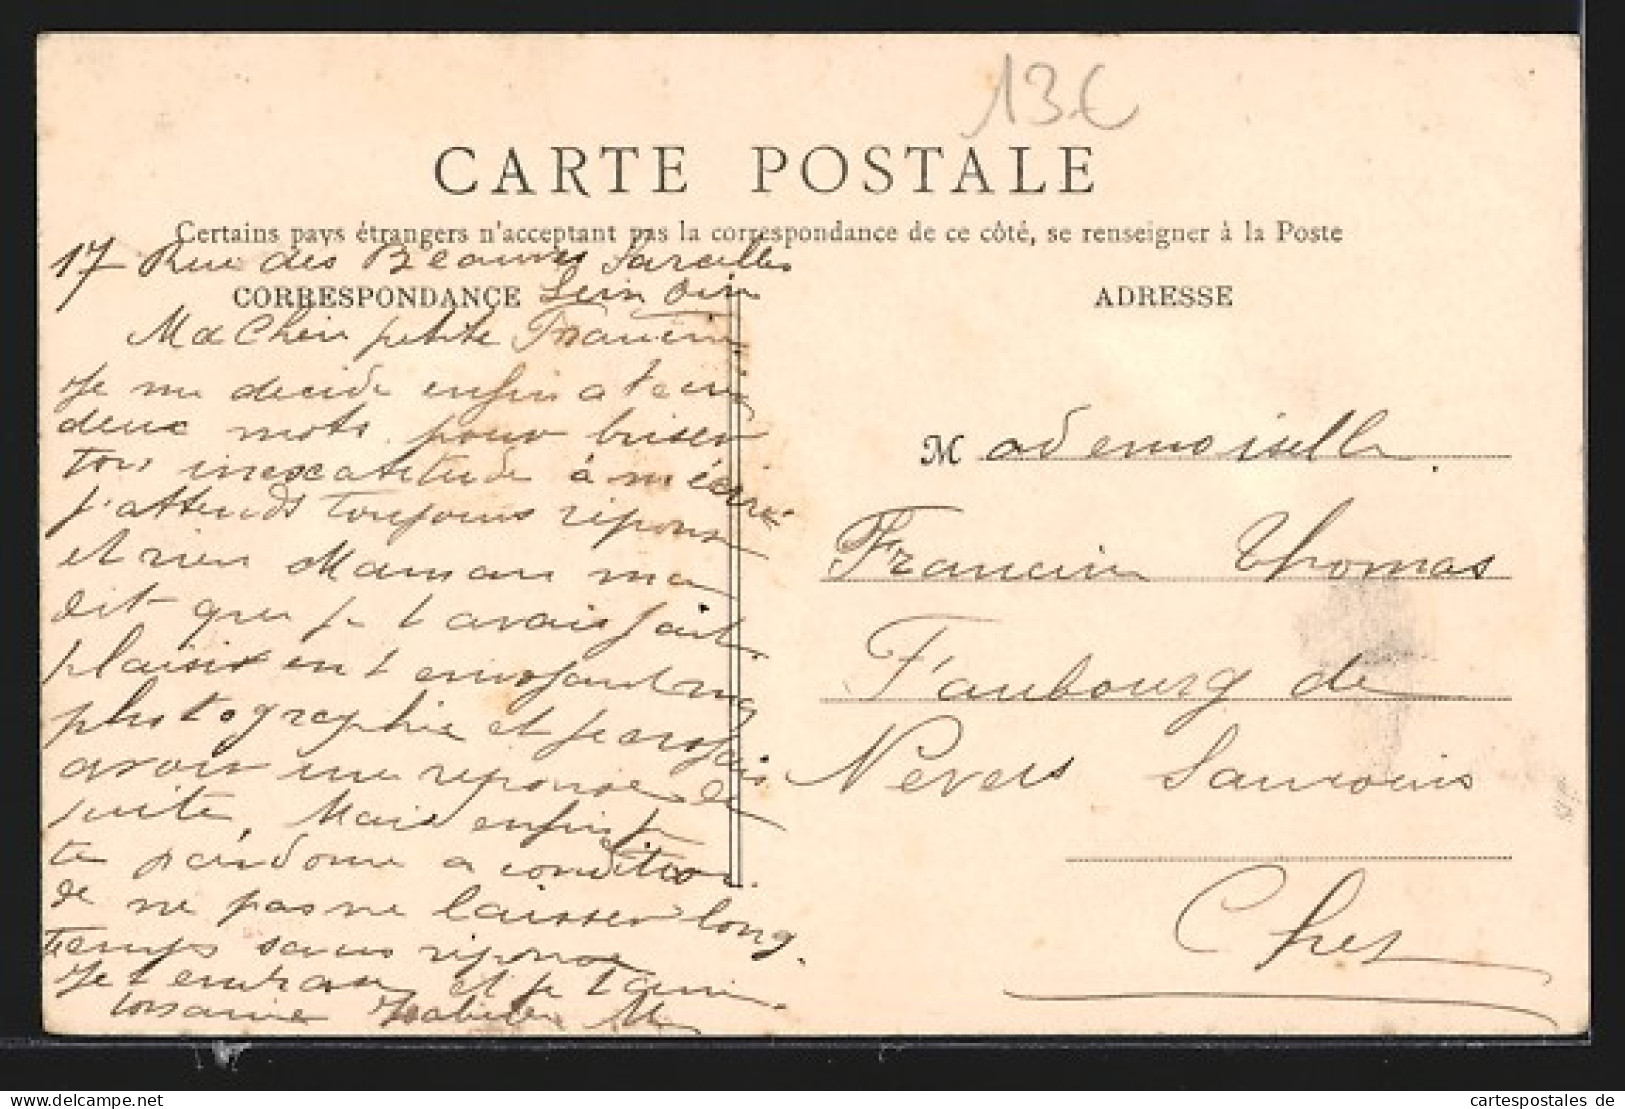 13€
CARTE POSTALE
Certains pays étrangers n'acceptant pas la correspondance de ce côté, se renseigner à la Poste
17 Rue des Sarcelles
CORRESPONDANCE
Ma Cher petite Francine
Je me decide enfin a
deux mots pour briser
ton inexcatitude à m'écrire
j'attends toujours réponse
et rien Maman ma
dit que je t'avais fait
plaisir en t'envoyant ma
photographie et je croyais
avoir une reponse de
suite, Mais enfin je
te pardonne a condition
de ne pas me laisser long
temps sans réponse
Je t'embrasse et je t'aime
M
ADRESSE
Mademoiselle
Francine Thomas
Faubourg de
Nevers Sancoins
Cher
cartespostales de
https://www.delcampe.net